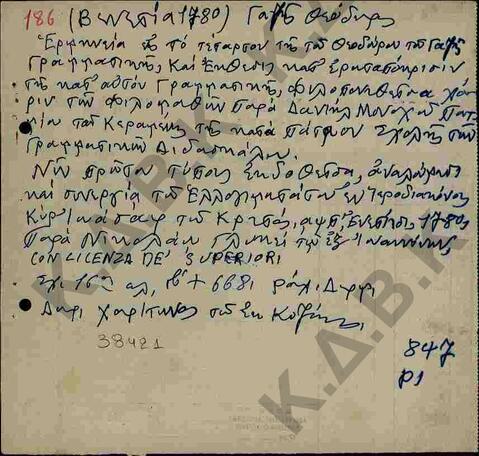 186 (Βενετία 1780) Γαζῆς Θεόδωρος
Ἑρμηνεία εἰς τό τέταρτον τῆς τοῦ Θεοδώρου τοῦ Γαζῆ
Γραμματικῆς, καί Ἔκθεσις κατ' ἐρωταπόκρισιν
τῆς κατ' αὐτόν Γραμματικῆς, φιλοπονηθεῖσα χά-
ριν τῶν φιλομαθῶν παρά Δανιήλ Μοναχοῦ Πατ-
μίου τοῦ Κεραμέως τῆς κατά Πάτμον Σχολῆς τῶν
Γραμματικῶν Διδασκάλου.
Νῦν πρῶτον τύποις ἐκδοθεῖσα, ἀναλώμασι
καί συνεργίᾳ τοῦ Ἐλλογιμωτάτου ἐν Ἱεροδιακόνοις
Κυρίου τοῦ Κρητός, αψπ, Ἐνετίησι, 1780,
Παρά Νικολάῳ Γλυκεῖ τῷ ἐξ Ἰωαννίνων
CON LICENZA DE' SUPERIORI
Σχ. 16ο + 668,
Δωρ. Χαρίτωνος τοῦ ἐκ Κοζάνης
38421
847
Ρ1
Κ.Δ.Β.Κ
Κ.Δ.Β.Κ
Κ.Δ.Β.Κ